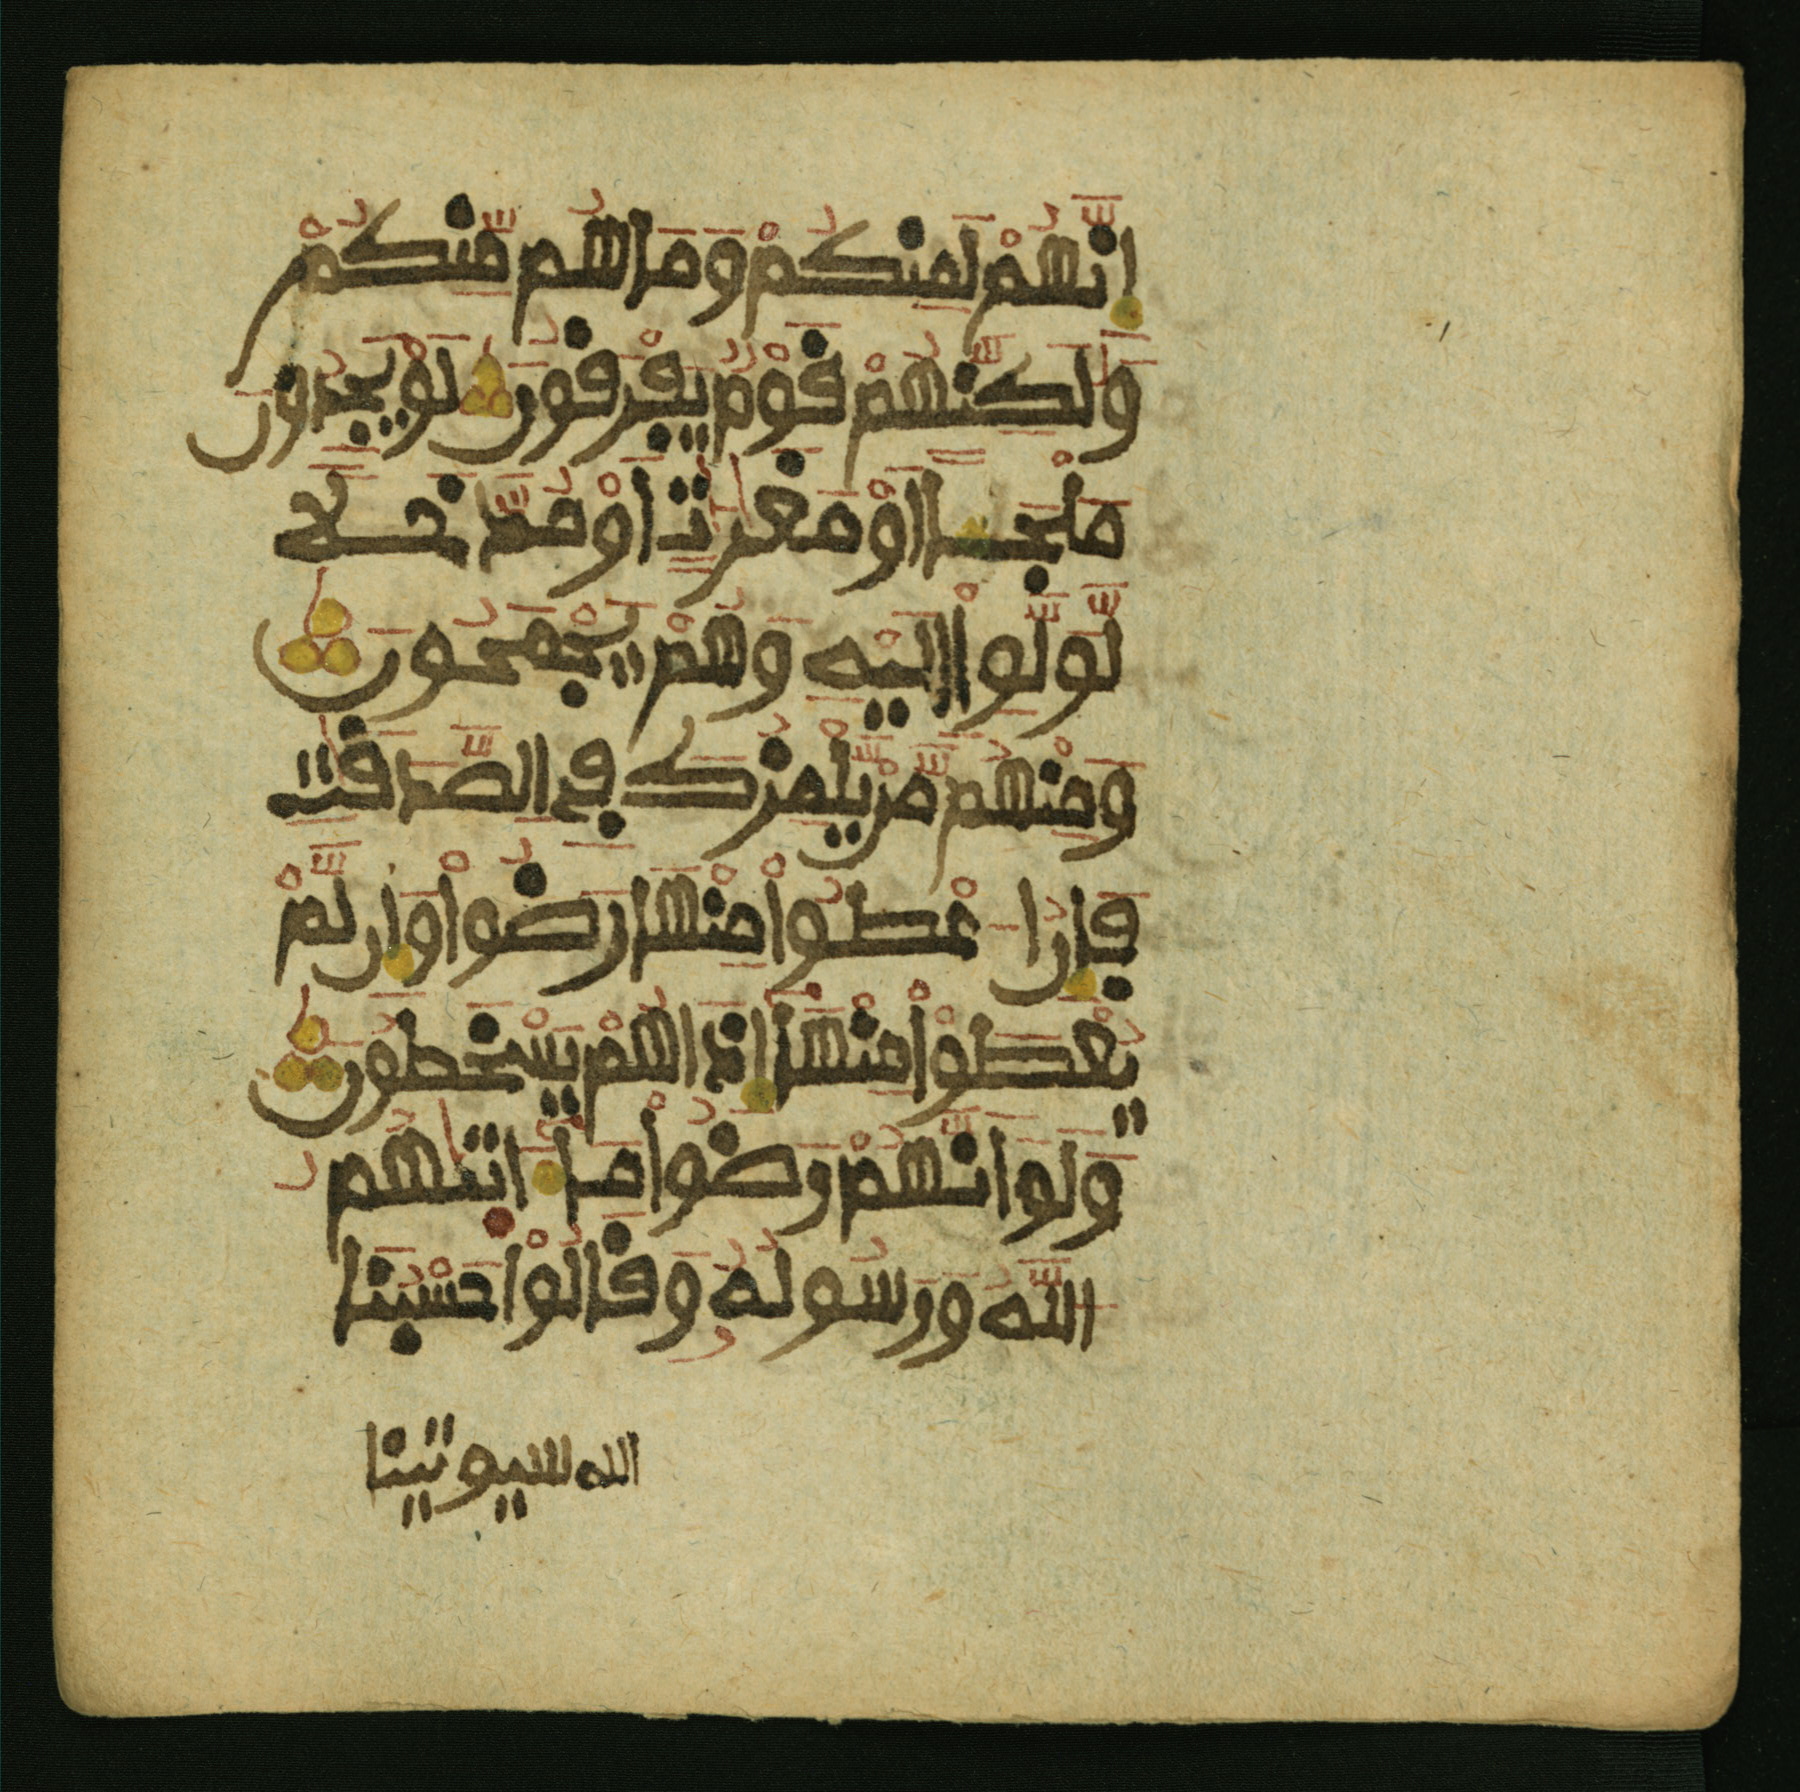 إِنَّهُمْ لَمِنكُمْ وَمَا هُم مِّنكُمْ
وَلَٰكِنَّهُمْ قَوْمٌ يَفْرَقُونَ لَوْ يَجِدُونَ
مَلْجَـًٔا اَوْ مَغَٰرَٰتٍ اَوْ مُدَّخَلًا
لَّوَلَّوِا اِلَيْهِ وَهُمْ يَجْمَحُونَ
وَمِنْهُم مَّنْ يَّلْمِزُكَ فِي الصَّدَقَٰتِ
فَإِنُ ا عْطُواْ مِنْهَا رَضُواْ وَإِن لَّمْ
يُعْطَوْاْ مِنْهَا إِذَا هُمْ يَسْخَطُونَ
وَلَوَ اَنَّهُمْ رَضُواْ مَا ءَاتَيٰهُمُ
اللَّهُ وَرَسُولُهُ وَقَالُواْ حَسْبُنَا
الله سيوتينا